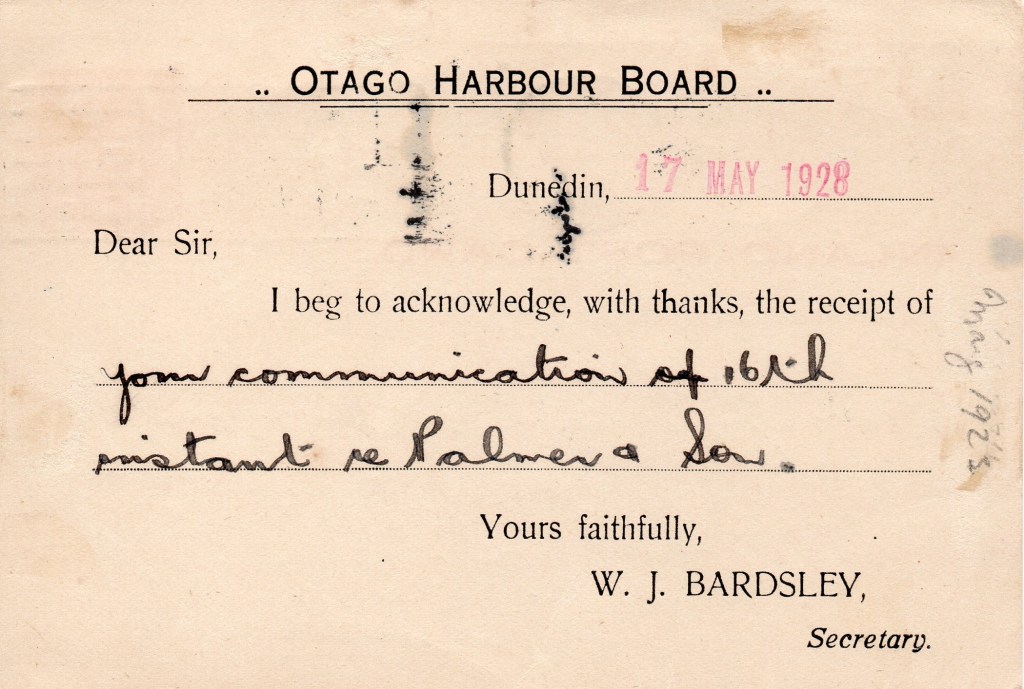 .. OTAGO HARBOUR BOARD ..
Dunedin, 17 MAY 1928
Dear Sir,
I beg to acknowledge, with thanks, the receipt of
your communication of 16th
instant re Palmer & Son.
Yours faithfully,
W. J. BARDSLEY,
Secretary.
May 1928